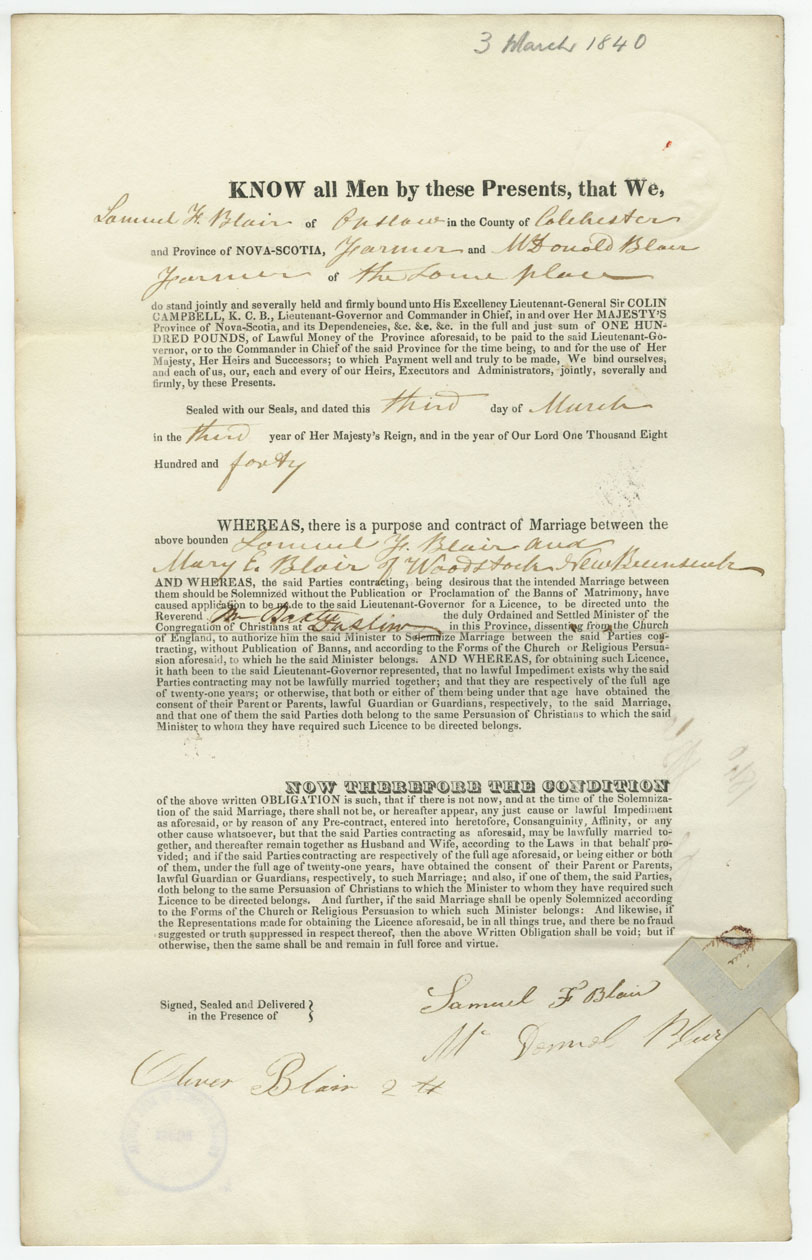 3 March 1840
KNOW all Men by these Presents, that We,
Samuel F. Blair of Onslow in the County of Colchester
and Province of NOVA-SCOTIA, Farmer and McDonald Blair
Farmer of the Same place
do stand jointly and severally held and firmly bound unto His Excellency Lieutenant-General Sir COLIN
CAMPBELL, K. C. B., Lieutenant-Governor and Commander in Chief, in and over Her MAJESTY'S
Province of Nova-Scotia, and its Dependencies, &c. &c. &c. in the full and just sum of ONE HUN-
DRED POUNDS, of Lawful Money of the Province aforesaid, to be paid to the said Lieutenant-Go-
vernor, or to the Commander in Chief of the said Province for the time being, to and for the use of Her
Majesty, Her Heirs and Successors; to which Payment well and truly to be made, We bind ourselves,
and each of us, our, each and every of our Heirs, Executors and Administrators, jointly, severally and
firmly, by these Presents.
Sealed with our Seals, and dated this third day of March
in the third year of Her Majesty's Reign, and in the year of Our Lord One Thousand Eight
Hundred and forty
WHEREAS, there is a purpose and contract of Marriage between the
above bounden Samuel F. Blair and
Mary E. Blair of Woodstock New Brunswick
AND WHEREAS, the said Parties contracting, being desirous that the intended Marriage between
them should be Solemnized without the Publication or Proclamation of the Banns of Matrimony, have
caused application to be made to the said Lieutenant-Governor for a Licence, to be directed unto the
Reverend Mr Baxter the duly Ordained and Settled Minister of the
Congregation of Christians at Onslow in this Province, dissenting from the Church
of England, to authorize him the said Minister to Solemnize Marriage between the said Parties con-
tracting, without Publication of Banns, and according to the Forms of the Church or Religious Persua-
sion aforesaid, to which he the said Minister belongs. AND WHEREAS, for obtaining such Licence,
it hath been to the said Lieutenant-Governor represented, that no lawful Impediment exists why the said
Parties contracting may not be lawfully married together; and that they are respectively of the full age
of twenty-one years; or otherwise, that both or either of them being under that age have obtained the
consent of their Parent or Parents, lawful Guardian or Guardians, respectively, to the said Marriage,
and that one of them the said Parties doth belong to the same Persuasion of Christians to which the said
Minister to whom they have required such Licence to be directed belongs.
NOW THEREFORE THE CONDITION
of the above written OBLIGATION is such, that if there is not now, and at the time of the Solemniza-
tion of the said Marriage, there shall not be, or hereafter appear, any just cause or lawful Impediment
as aforesaid, or by reason of any Pre-contract, entered into heretofore, Consanguinity, Affinity, or any
other cause whatsoever, but that the said Parties contracting as aforesaid, may be lawfully married to-
gether, and thereafter remain together as Husband and Wife, according to the Laws in that behalf pro-
vided; and if the said Parties contracting are respectively of the full age aforesaid, or being either or both
of them, under the full age of twenty-one years, have obtained the consent of their Parent or Parents,
lawful Guardian or Guardians, respectively, to such Marriage; and also, if one of them, the said Parties,
doth belong to the same Persuasion of Christians to which the Minister to whom they have required such
Licence to be directed belongs. And further, if the said Marriage shall be openly Solemnized according
to the Forms of the Church or Religious Persuasion to which such Minister belongs: And likewise, if
the Representations made for obtaining the Licence aforesaid, be in all things true, and there be no fraud
suggested or truth suppressed in respect thereof, then the above Written Obligation shall be void; but if
otherwise, then the same shall be and remain in full force and virtue.
Signed, Sealed and Delivered
in the Presence of
Samuel F Blair
Mc Donnel Blair
Oliver Blair 2